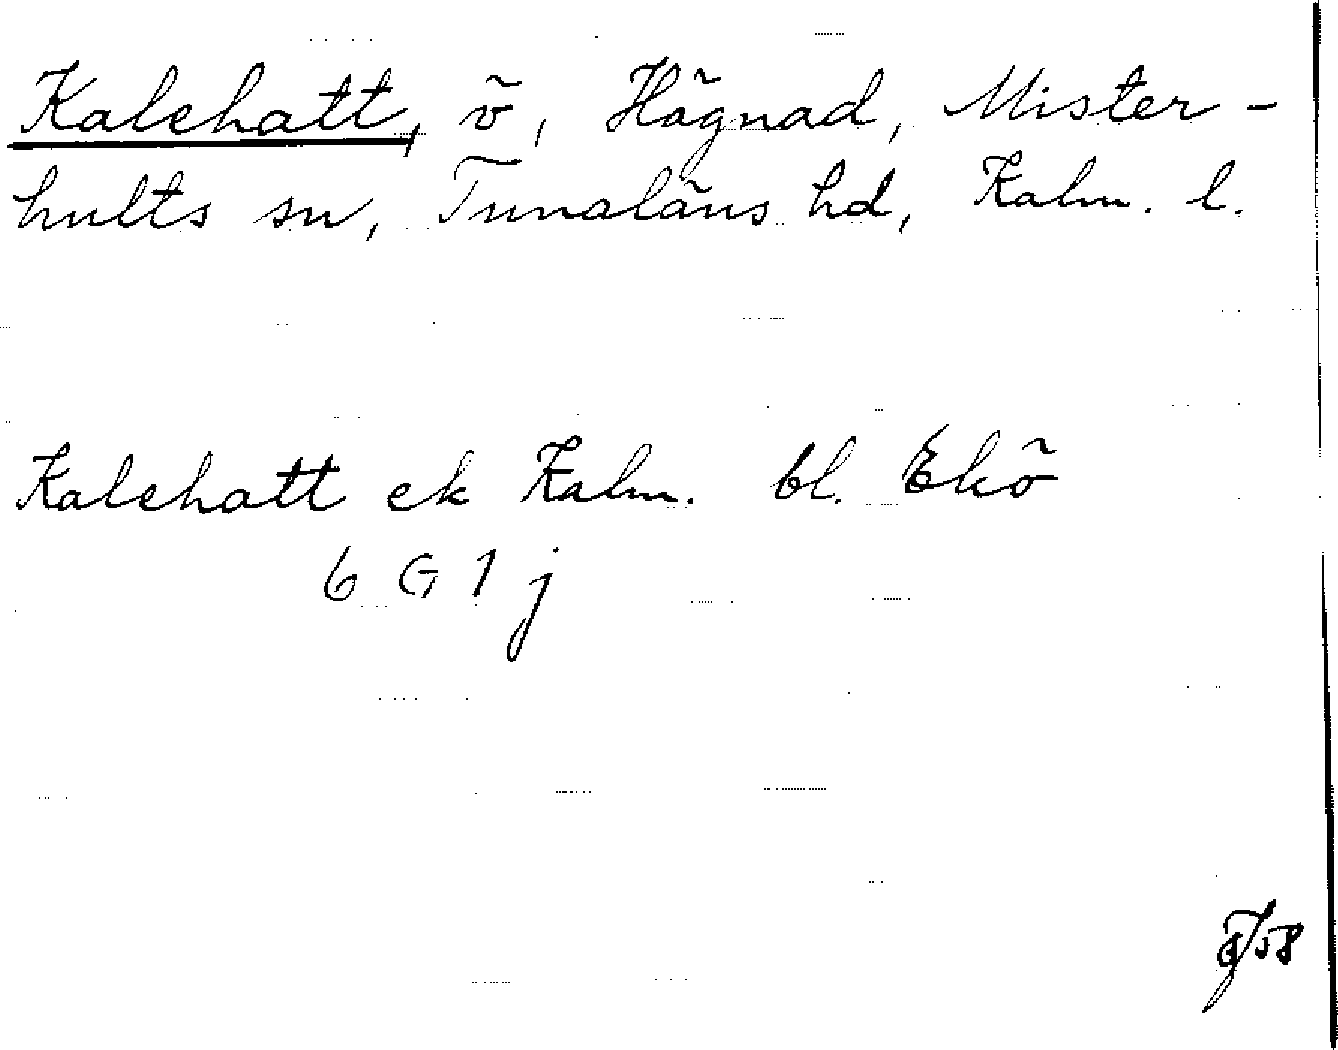 Kalehatt, ö, Hägnad, Mister-
hults sn, Tunaläns hd, Kalm. l.
Kalehatt ek Kalm. bl. Ekö
6 G 1 j